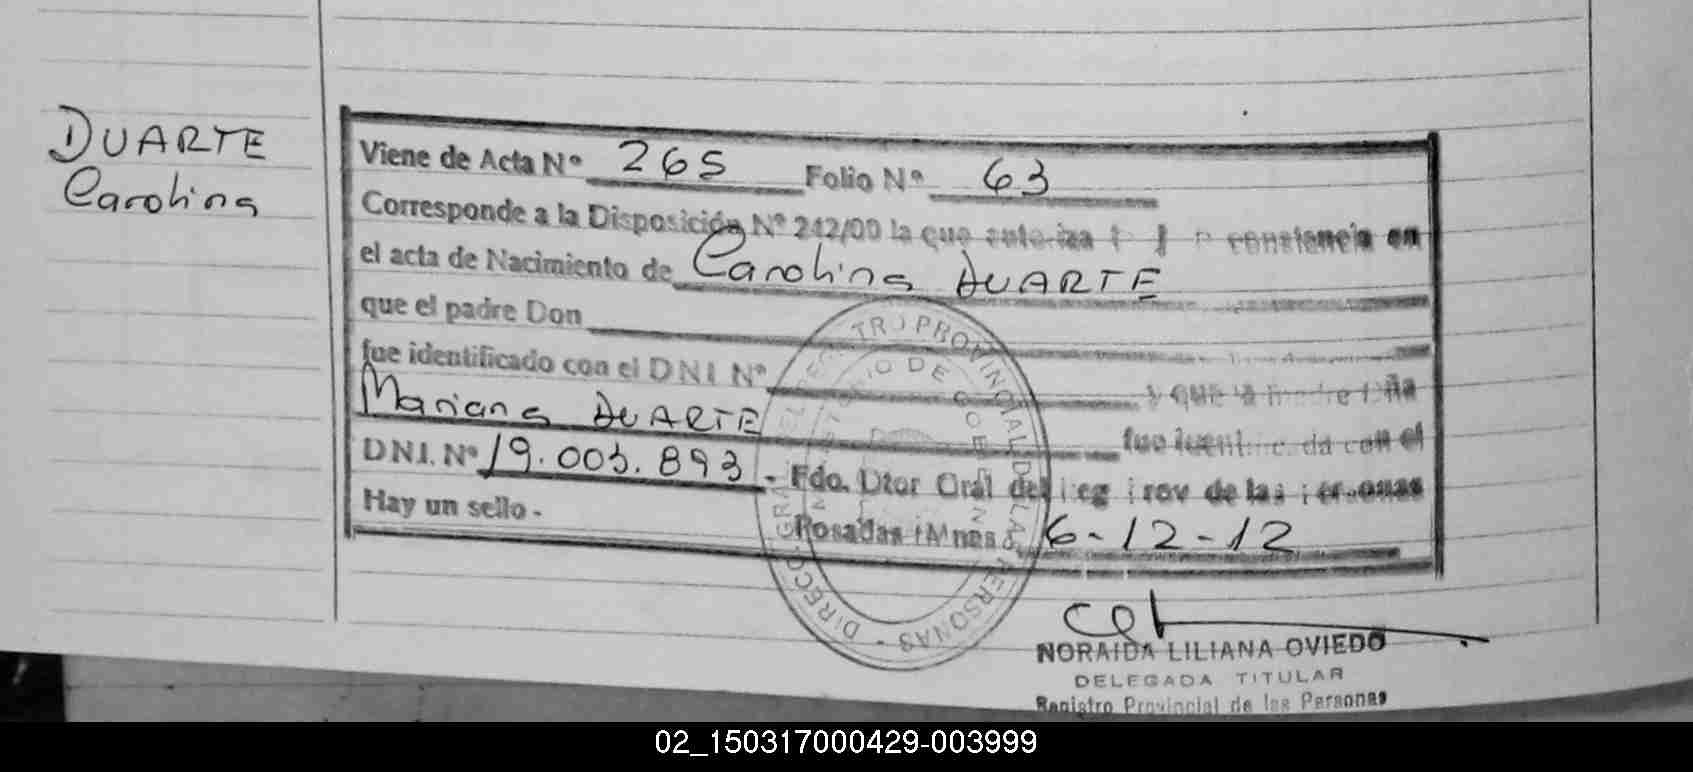 DUARTE
Carolina
Viene de Acta Nº 265 Folio Nº 63
Corresponde a la Disposición Nº 242/00 la que autoriza constancia en
el acta de Nacimiento de Carolina DUARTE
que el padre Don
fue identificado con el D N I Nº y que la madre Dña
Mariana DUARTE fue identificada con el
D N I. Nº 19.003.893 - Fdo. Dtor Gral del Reg Prov de las Personas
Hay un sello -
Posadas (Mnes) 6-12-12
DIRECC. GRAL DEL REGISTRO PROVINCIAL DE LAS PERSONAS
NORAIDA LILIANA OVIEDO
DELEGADA TITULAR
Registro Provincial de las Personas
02_150317000429-003999